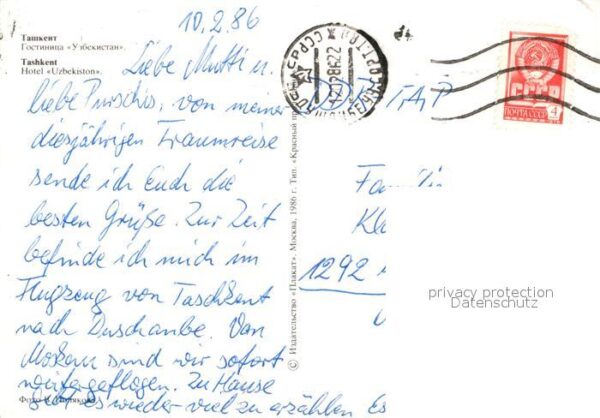 10.2.86
Ташкент
Гостиница «Узбекистан».
Tashkent
Hotel «Uzbekiston».
Liebe Mutti u.
liebe Purschis, von meiner
diesjährigen Traumreise
sende ich Euch die
besten Grüße. Zur Zeit
befinde ich mich im
Flugzeug von Taschkent
nach Duschanbe. Von
Moskau sind wir sofort
weitergeflogen. Zu Hause
gibt es wieder viel zu erzählen Es
Фото
© Издательство «Плакат». Москва, 1986 г. Тип. «Красный
СССР
ПОЧТА СССР
4
DDR
Kl
1292
privacy protection
Datenschutz